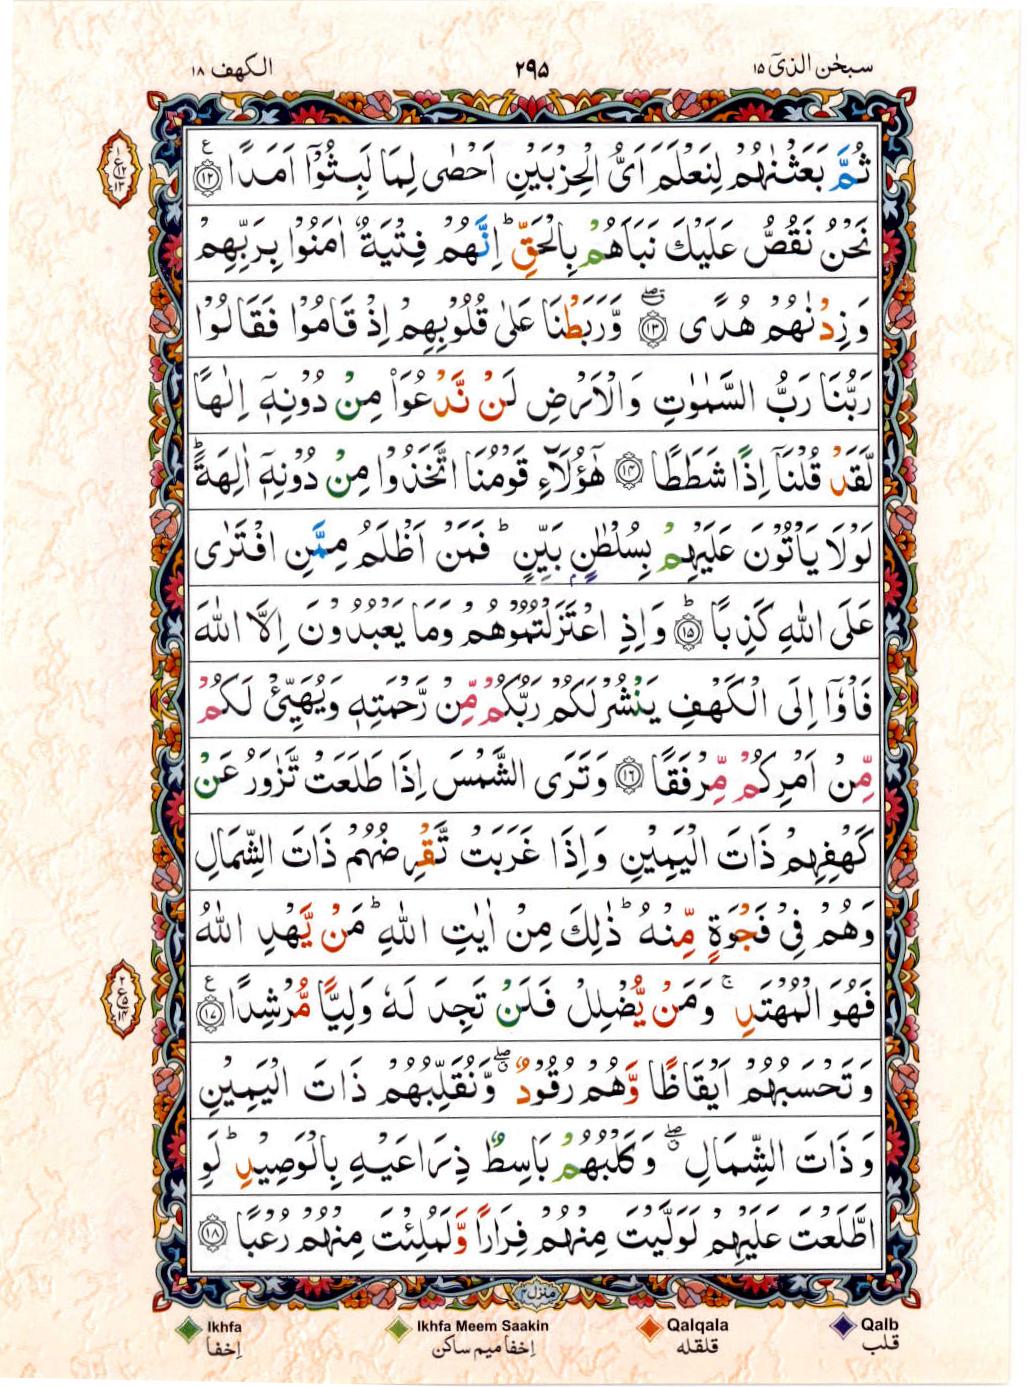 سبحٰن الذیٓ ١٥
٢٩٥
الكهف ١٨
ثُمَّ بَعَثْنٰهُمْ لِنَعْلَمَ اَیُّ الْحِزْبَیْنِ اَحْصٰی لِمَا لَبِثُوْۤا اَمَدًا ﴿١٢﴾
نَحْنُ نَقُصُّ عَلَیْكَ نَبَاَهُمْ بِالْحَقِّ ؕ اِنَّهُمْ فِتْیَةٌ اٰمَنُوْا بِرَبِّهِمْ
وَزِدْنٰهُمْ هُدًی ﴿١٣﴾ وَّرَبَطْنَا عَلٰی قُلُوْبِهِمْ اِذْ قَامُوْا فَقَالُوْا
رَبُّنَا رَبُّ السَّمٰوٰتِ وَالْاَرْضِ لَنْ نَّدْعُوَا۠ مِنْ دُوْنِهٖۤ اِلٰهًا
لَّقَدْ قُلْنَاۤ اِذًا شَطَطًا ﴿١٤﴾ هٰۤؤُلَآءِ قَوْمُنَا اتَّخَذُوْا مِنْ دُوْنِهٖۤ اٰلِهَةً ؕ
لَوْلَا یَاْتُوْنَ عَلَیْهِمْ بِسُلْطٰنٍۭ بَیِّنٍ ؕ فَمَنْ اَظْلَمُ مِمَّنِ افْتَرٰی
عَلَی اللّٰهِ كَذِبًا ﴿١٥﴾ؕ وَاِذِ اعْتَزَلْتُمُوْهُمْ وَمَا یَعْبُدُوْنَ اِلَّا اللّٰهَ
فَاْوٗۤا اِلَی الْكَهْفِ یَنْشُرْ لَكُمْ رَبُّكُمْ مِّنْ رَّحْمَتِهٖ وَیُهَیِّئْ لَكُمْ
مِّنْ اَمْرِكُمْ مِّرْفَقًا ﴿١٦﴾ وَتَرَی الشَّمْسَ اِذَا طَلَعَتْ تَّزٰوَرُ عَنْ
كَهْفِهِمْ ذَاتَ الْیَمِیْنِ وَاِذَا غَرَبَتْ تَّقْرِضُهُمْ ذَاتَ الشِّمَالِ
وَهُمْ فِیْ فَجْوَةٍ مِّنْهُ ؕ ذٰلِكَ مِنْ اٰیٰتِ اللّٰهِ ؕ مَنْ یَّهْدِ اللّٰهُ
فَهُوَ الْمُهْتَدِ ۚ وَمَنْ یُّضْلِلْ فَلَنْ تَجِدَ لَهٗ وَلِیًّا مُّرْشِدًا ﴿١٧﴾
وَتَحْسَبُهُمْ اَیْقَاظًا وَّهُمْ رُقُوْدٌ ۖ وَّنُقَلِّبُهُمْ ذَاتَ الْیَمِیْنِ
وَذَاتَ الشِّمَالِ ۖ وَكَلْبُهُمْ بَاسِطٌ ذِرَاعَیْهِ بِالْوَصِیْدِ ؕ لَوِ
اطَّلَعْتَ عَلَیْهِمْ لَوَلَّیْتَ مِنْهُمْ فِرَارًا وَّلَمُلِئْتَ مِنْهُمْ رُعْبًا ﴿١٨﴾
منزل ٤
Ikhfa Ikhfa Meem Saakin Qalqala Qalb
قلب قلقله اِخفا میم ساکن اِخفا